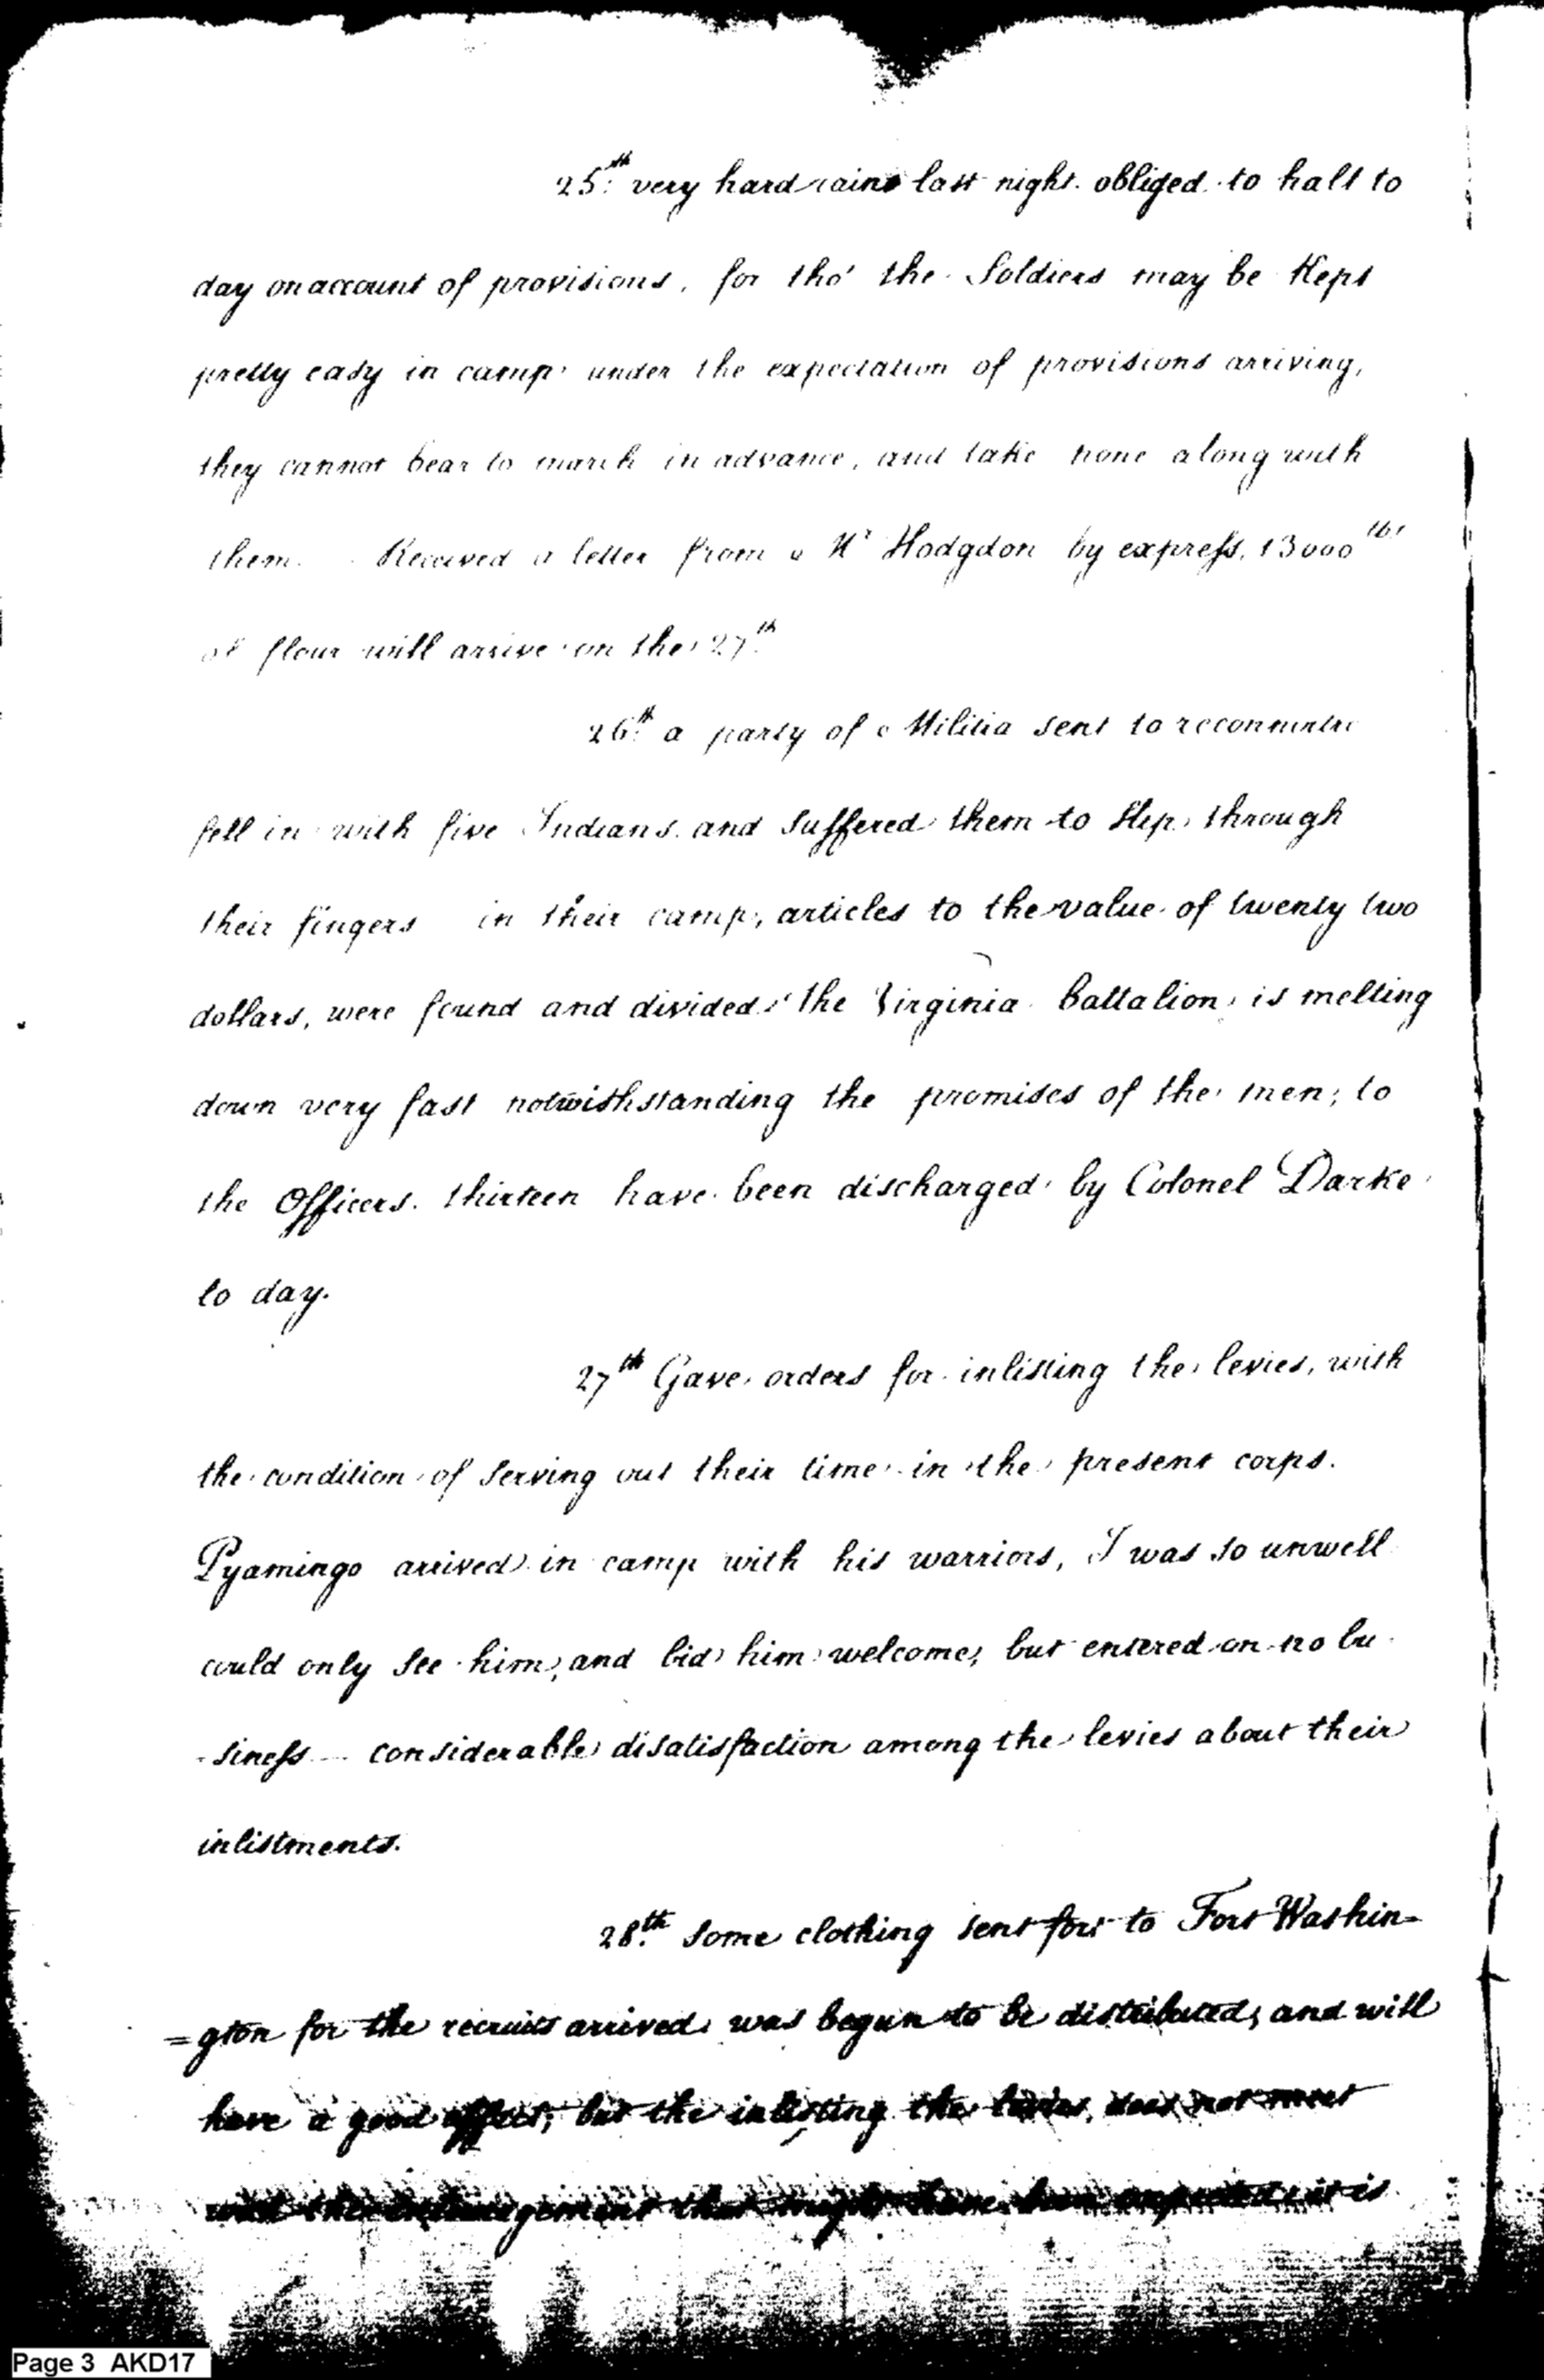 25th very hard rain last night. obliged to halt to
day on account of provisions, for tho' the Soldiers may be Kept
pretty easy in camp under the expectation of provisions arriving,
they cannot bear to march in advance, and take none along with
them. Received a letter from Mr Hodgdon by express, 13000 lbs
of flour will arrive on the 27th
26th a party of Militia sent to reconnoitre
fell in with five Indians and suffered them to slip through
their fingers in their camp, articles to the value of twenty two
dollars, were found and divided. the Virginia Battalion is melting
down very fast notwithstanding the promises of the men; to
the Officers. thirteen have been discharged by Colonel Darke
to day.
27th Gave orders for inlisting the levies, with
the condition of serving out their time in the present corps.
Pyamingo arrived in camp with his warriors, I was so unwell
could only see him, and bid him welcome, but entered on no bu
-siness - considerable disatisfaction among the levies about their
inlistments.
28th. some clothing sent for to Fort Washin=
=gton for the recruits arrived was begun to be distributed, and will
have a good effect; but the inlisting the levies, does not meet
with the encouragement that might have been expected, it is
Page 3 AKD17